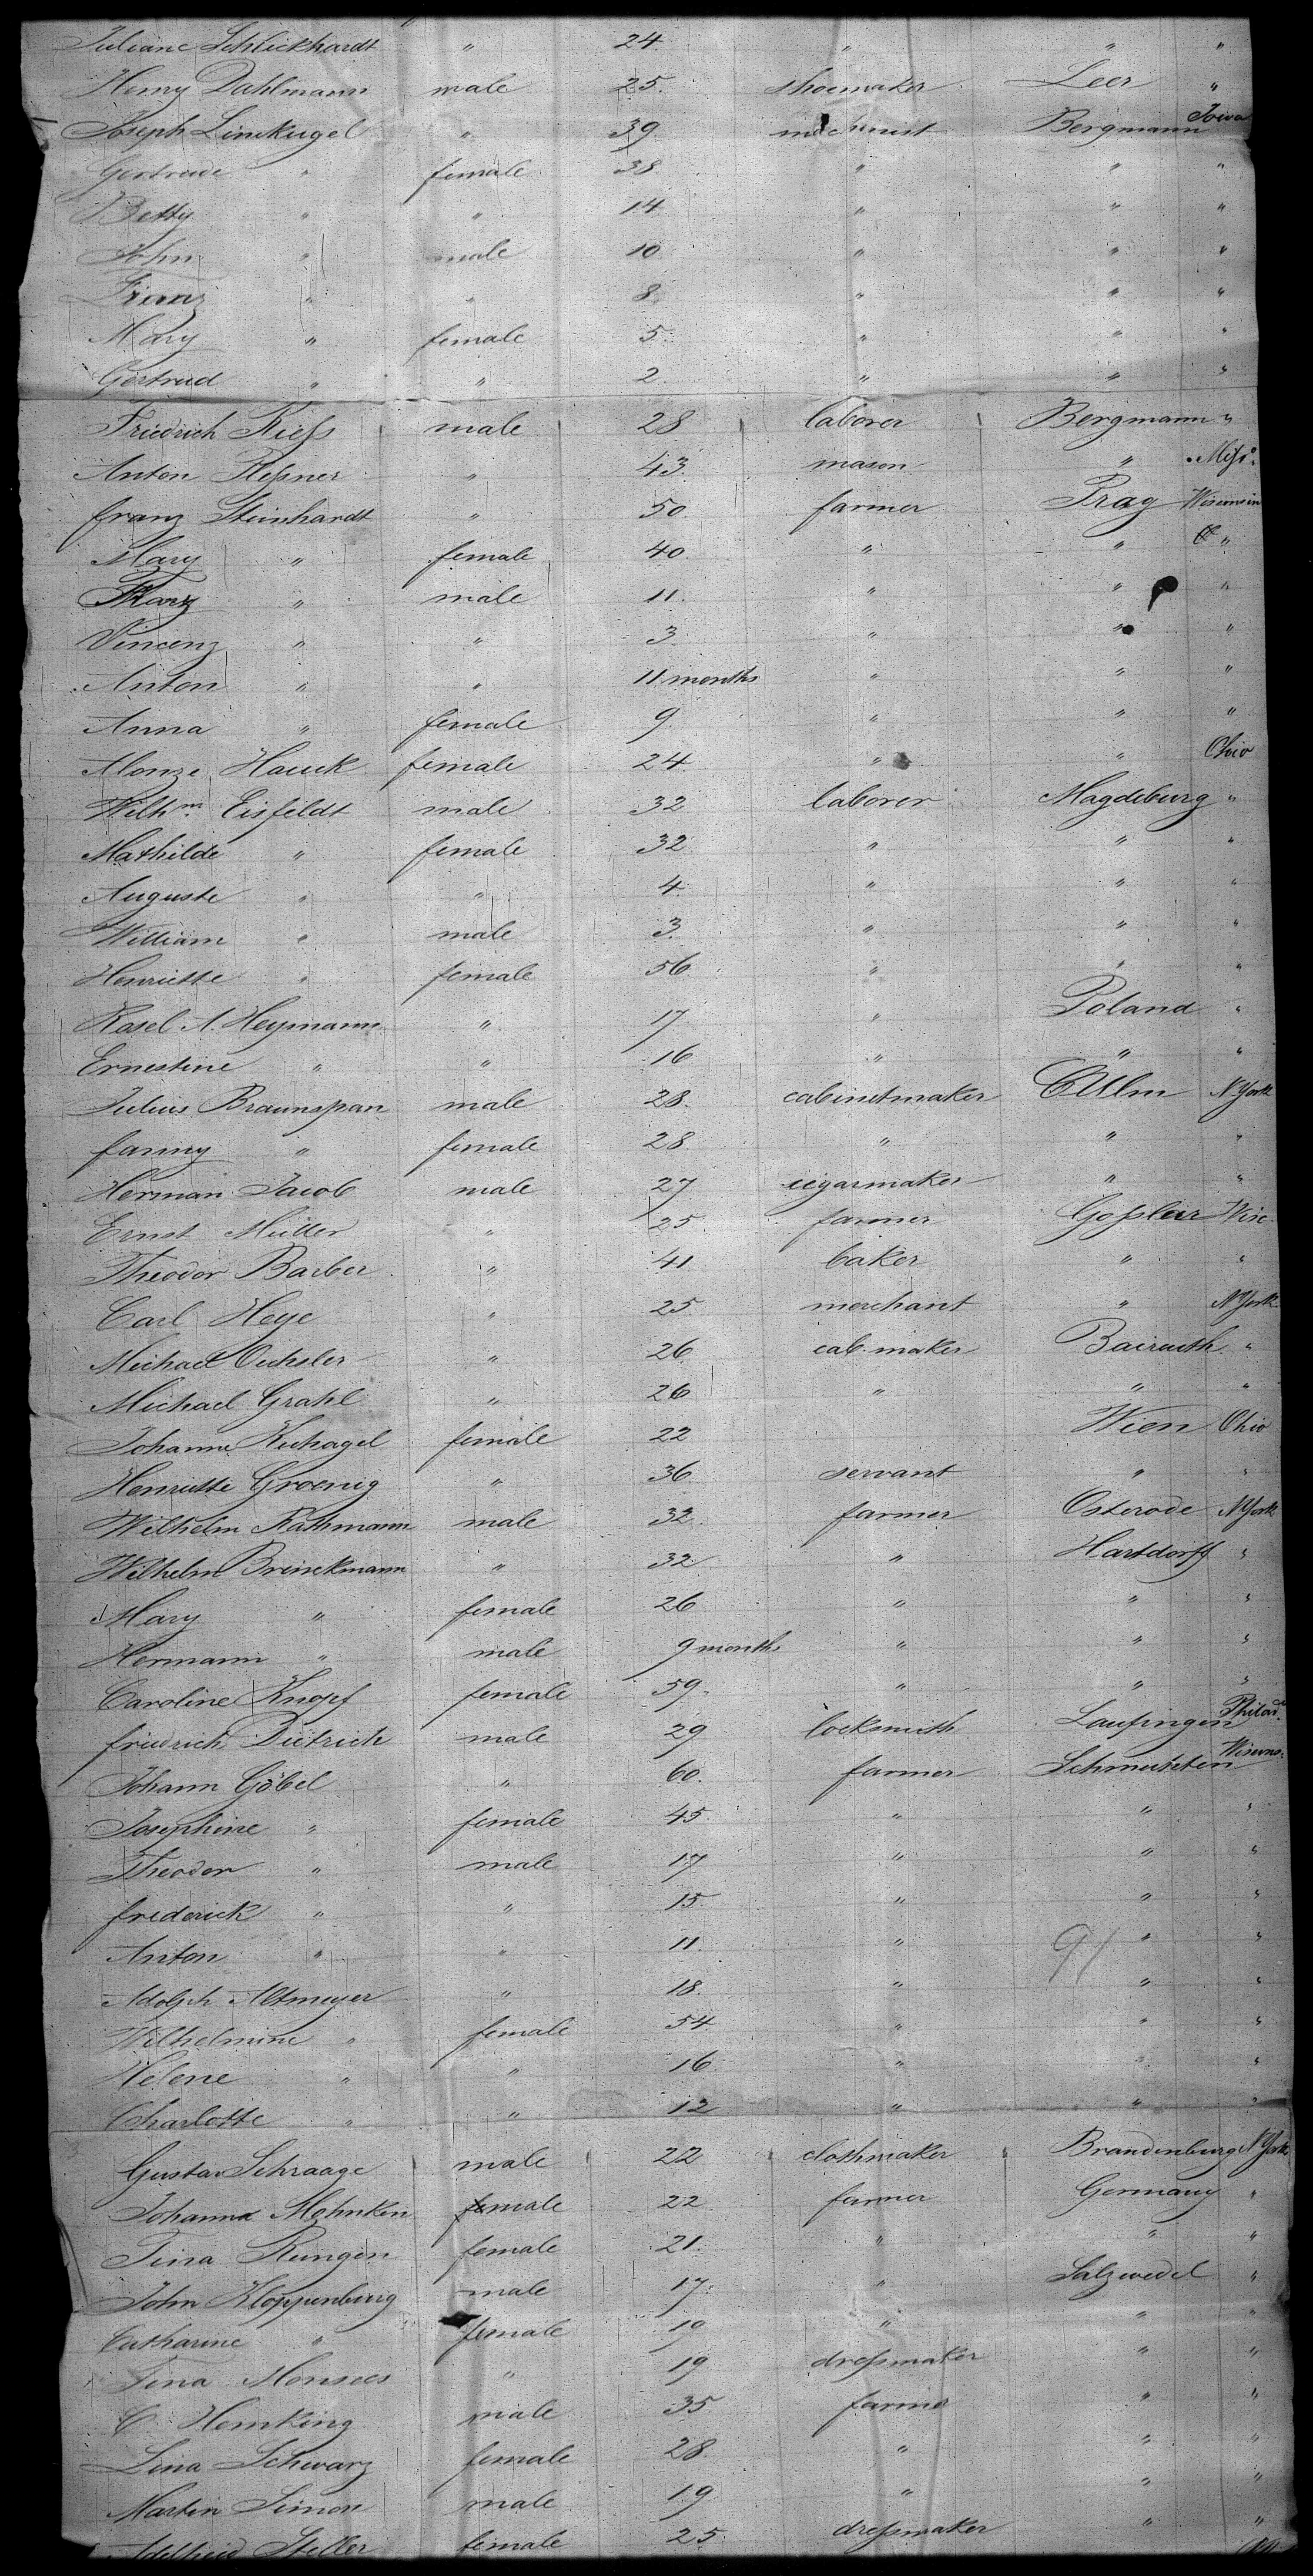 Juliane Schlickhardt " 24 " " "
Henry Dahlmann male 25. shoemaker Leer "
Joseph Linckugel " 39 machinist Bergmann Joiva
Gertrude " female 38 " " "
Betty " " 14 " " "
John " male 10 " " "
Franz " " 8 " " "
Mary " female 5. " " "
Gertrud " " 2. " " "
Friedrich Rieß male 28 laborer Bergmann "
Anton Pleßner " 43. mason " Misso.
franz Steinhardt " 50 farmer Prag Wisconsin
Mary " female 40. " " "
Franz " male 11. " " "
Vincenz " " 3 " " "
Anton " " 11 months " " "
Anna " female 9. " " "
Hauck female 24 " " Ohio
Wilhm. Eisfeldt male 32 laborer Magdeburg "
Mathilde " female 32 " " "
Auguste " " 4. " " "
William " male 3. " " "
Henriette " female 56. " " "
Rasel A. Heymann " 17. " Poland "
Ernestine " " 16 " " "
Julius Braunspan male 28. cabinetmaker CUlm N York
fanny " female 28. " " "
Herman Jacob male 27 cigarmaker " "
Ernst Müller " 25. farmer Goßlar Wisc.
Theodor Barber " 41 baker " "
Carl Heye " 25 merchant " N York
Michael Oechsler " 26 cab. maker Baireuth "
Michael Grahl " 26 " " "
Johanne Kuhagel female 22 Wien Ohio
Henriette Groenig " 36 servant " "
Wilhelm Rathmann male 32. farmer Osterode N York
Wilhelm Brinckmann " 32 " Hartdorff "
Mary " female 26 " " "
Hermann " male 9 months " " "
Caroline Knopf female 59. " " "
friedrich Dietrich male 29 locksmith Laufingen Philad.
Johann Göbel " 60. farmer Wiscons.
Josephine " female 45. " " "
Theodor " male 17 " " "
frederick " " 15. " " "
Anton " " 11. " " "
91
Adolph Altmeyer " 18. " " "
Wilhelmine " female 54 " " "
Helene " " 16. " " "
Charlotte " " 12 " " "
Gustav Schraage male 22 clothmaker Brandenburg N York
Johanna Mohnken female 22 farmer Germany "
Tina Rungen female 21. " " "
John Kloppenburg male 17. " Salzwedel "
Catharine " female 19 " " "
Tina Monsees " 19 dreßmaker " "
C. Hemking male 35 farmer " "
Lina Schwarz female 28. " " "
Martin Simon male 19 " " "
Adelheid Steller female 25 dreßmaker " "